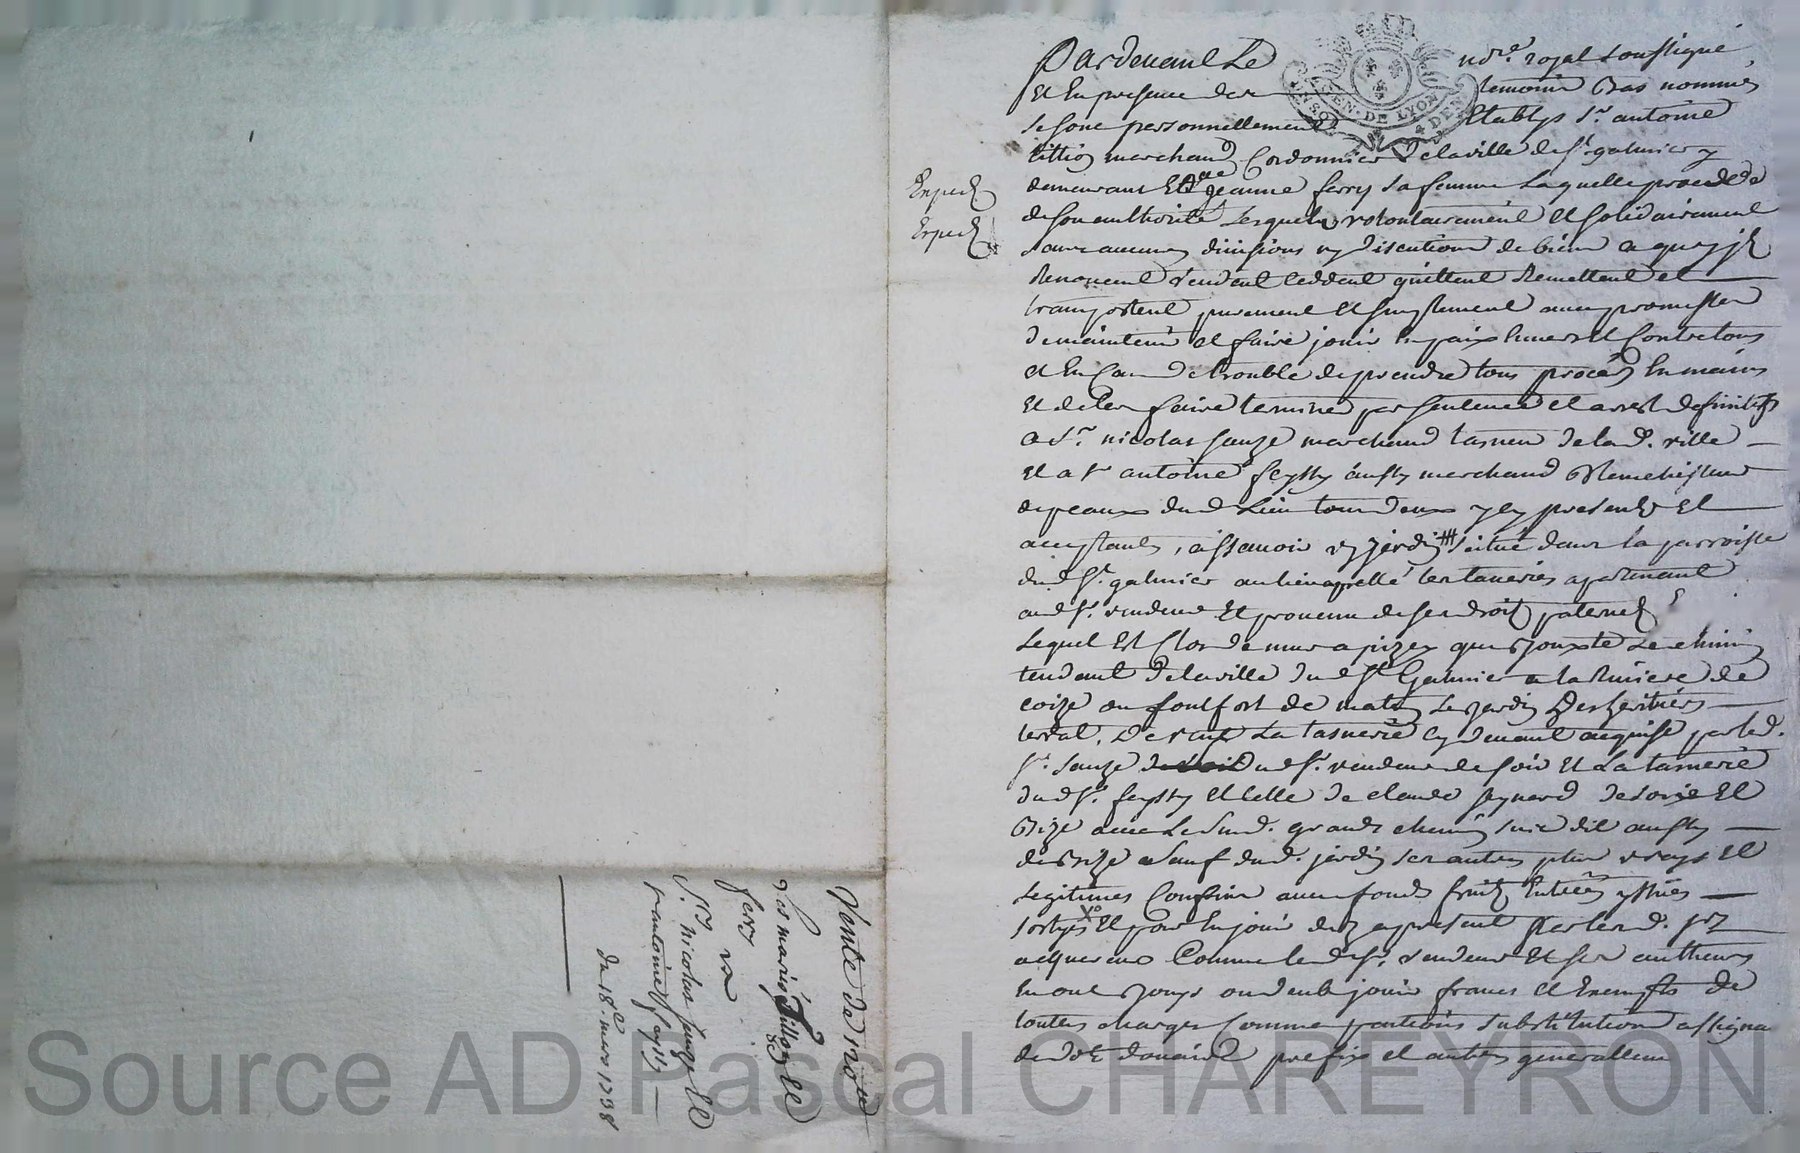 Pardevant Le nore. royal soussigné
Et En presence des temoins Bas nommés
se sont personnellement Etablys Sr. antoine
tillion marchand Cordonnier de la ville de St. galmier y
demeurant Et jeanne ferry sa femme Laquelle procede
de son authorité Lesquels volontairement Et solidairement
sans aucunes divisions ny discutions de biens a quoy jls
Renoncent vendent Ceddent quittent Remettent et
transportent purement Et simplement avec promesses
de maintenir et faire jouir En paix Envers Et Contre tous
et En Cas de trouble de prendre tous procés En mains
Et de les faire terminer par sentence et arrest definitifs
a Sr. nicolas sauze marchand tasneur de lad. ville
Et a Sr antoine feyssy aussy marchand Blanchisseur
de peaux dud Lieu tous deux ycy presents Et
acceptants, assavoir un jardin situé dans la parroisse
dud St. galmier au lieu appellé les taneries apartenant
aud Sr. vendeur Et provenu de ses droits paternels
Lequel Est Clos de murs a pizez qui joüxte Le chemin
tendant de la ville dud St Galmier a la Riviere de
coize ou fontfort de matin Le jardin Des heritiers
terrat, De vent La tasnerie cy devant acquise par led.
Sr. sauze dud Sr. vendeur de soir Et La tasnerie
dud Sr. feyssy Et Celle de claude peynard de soir Et
Bize avec Le susd. grand chemin susd dit aussy
de Bize sauf dud. jardin ses autres plus vrays Et
Legitimes Confins avec fonds fruits Entrées yssües
sortyes Et pour En jouir dez apresent par lesd. srs
acquereurs Comme led Sr. vendeur Et ses autheurs
En ont Jouys ou deub jouir francs et Exempts de
toutes charges Comme pentions substitution assignat
de dot doüaire prefix et autres generallem
Exped
Exped
Vente de 170 ll
Les mariés Tillon Et
ferry
a
Srs nicolas sauze Et
antoine feyssy
du 18e. mars 1738
HENS. GEN. DE LYON 4 DEN.
Source AD Pascal CHAREYRON